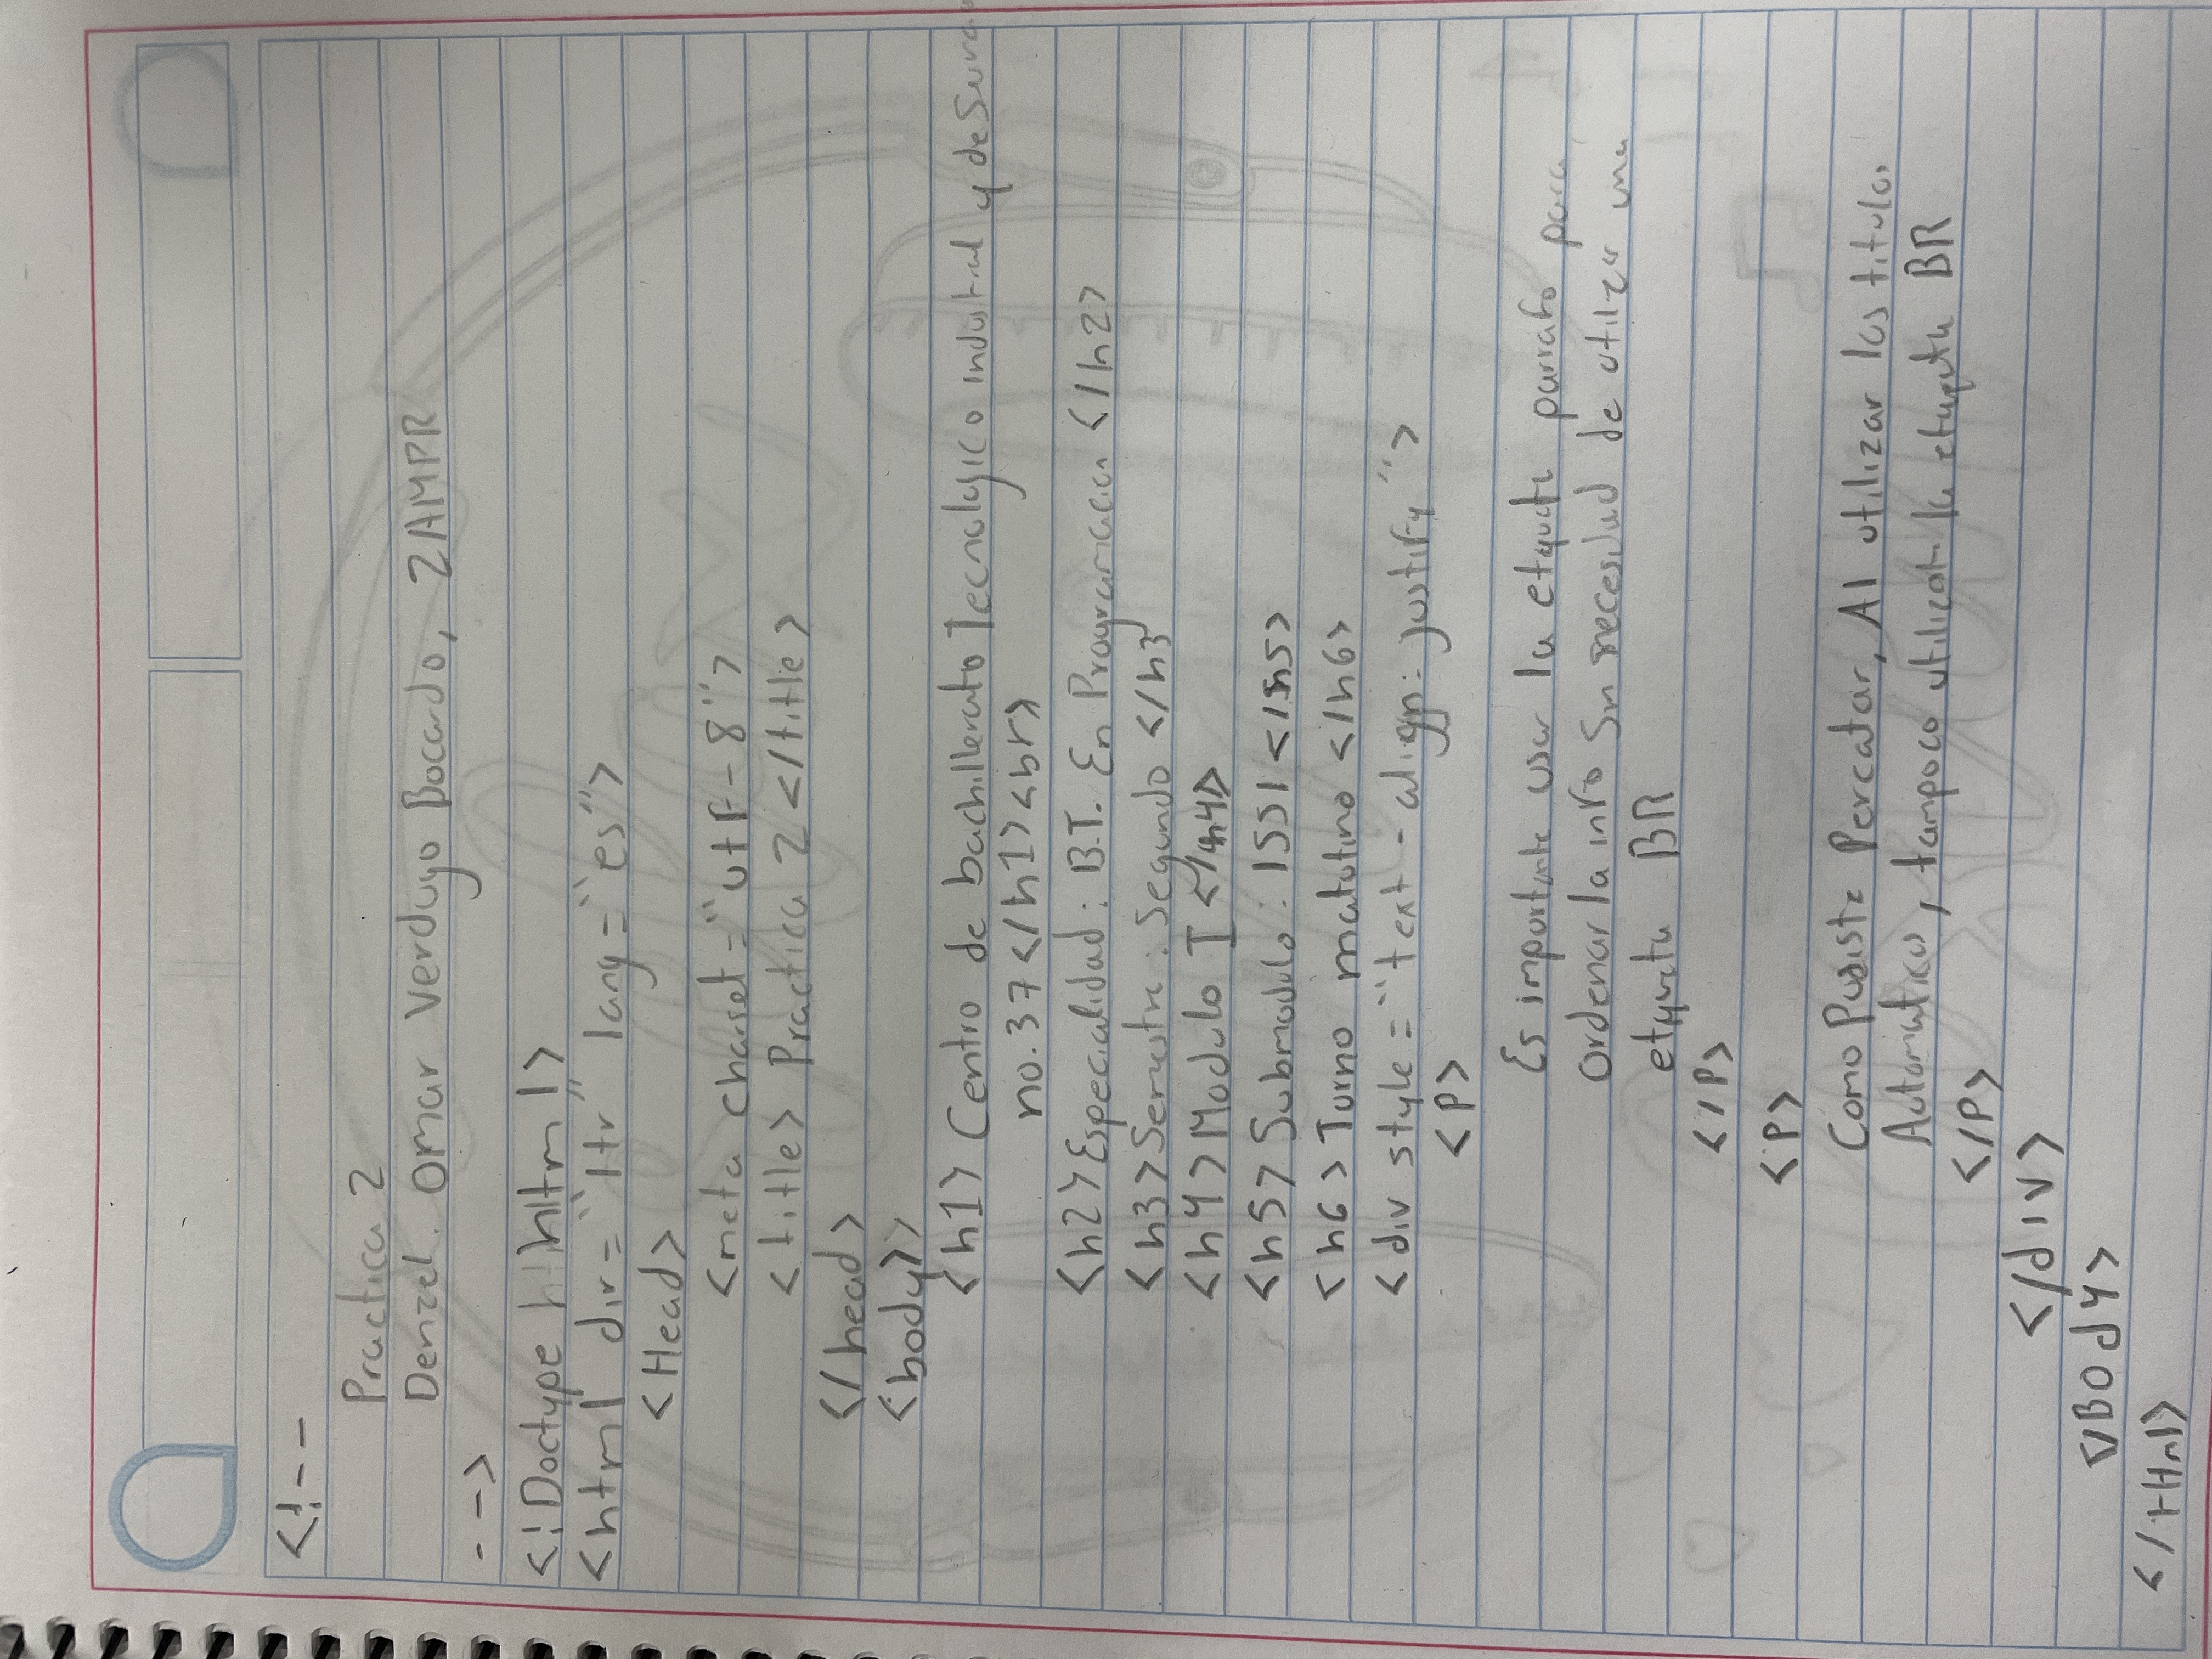 <!--
Practica 2
Denzel. Omar Verdugo Bocardo, 2AMPR
-->
<!Doctype html>
<html dir="ltr" lang="es">
<Head>
<meta charset="utf-8">
<title> Practica 2 </title>
</head>
<body>
<h1> Centro de bachillerato Tecnologico industrial y de Servicio
no. 37</h1><br>
<h2>Especialidad: B.T. En Programacion </h2>
<h3>Semestre: Segundo </h3
<h4>Modulo I </h4>
<h5>Submodulo: 1551 </h5>
<h6>Turno matutino </h6>
<div style="text-align: justify">
<P>
Es importante usar la etiqueta parrafo para
Ordenar la info Sin necesidad de utilizar una
etiqueta BR
</P>
<P>
Como Pudiste Percatar, Al utilizar los titulos
Automaticos, tampoco utilizate la etiqueta BR
</P>
</div>
</BOdy>
</HtMl>